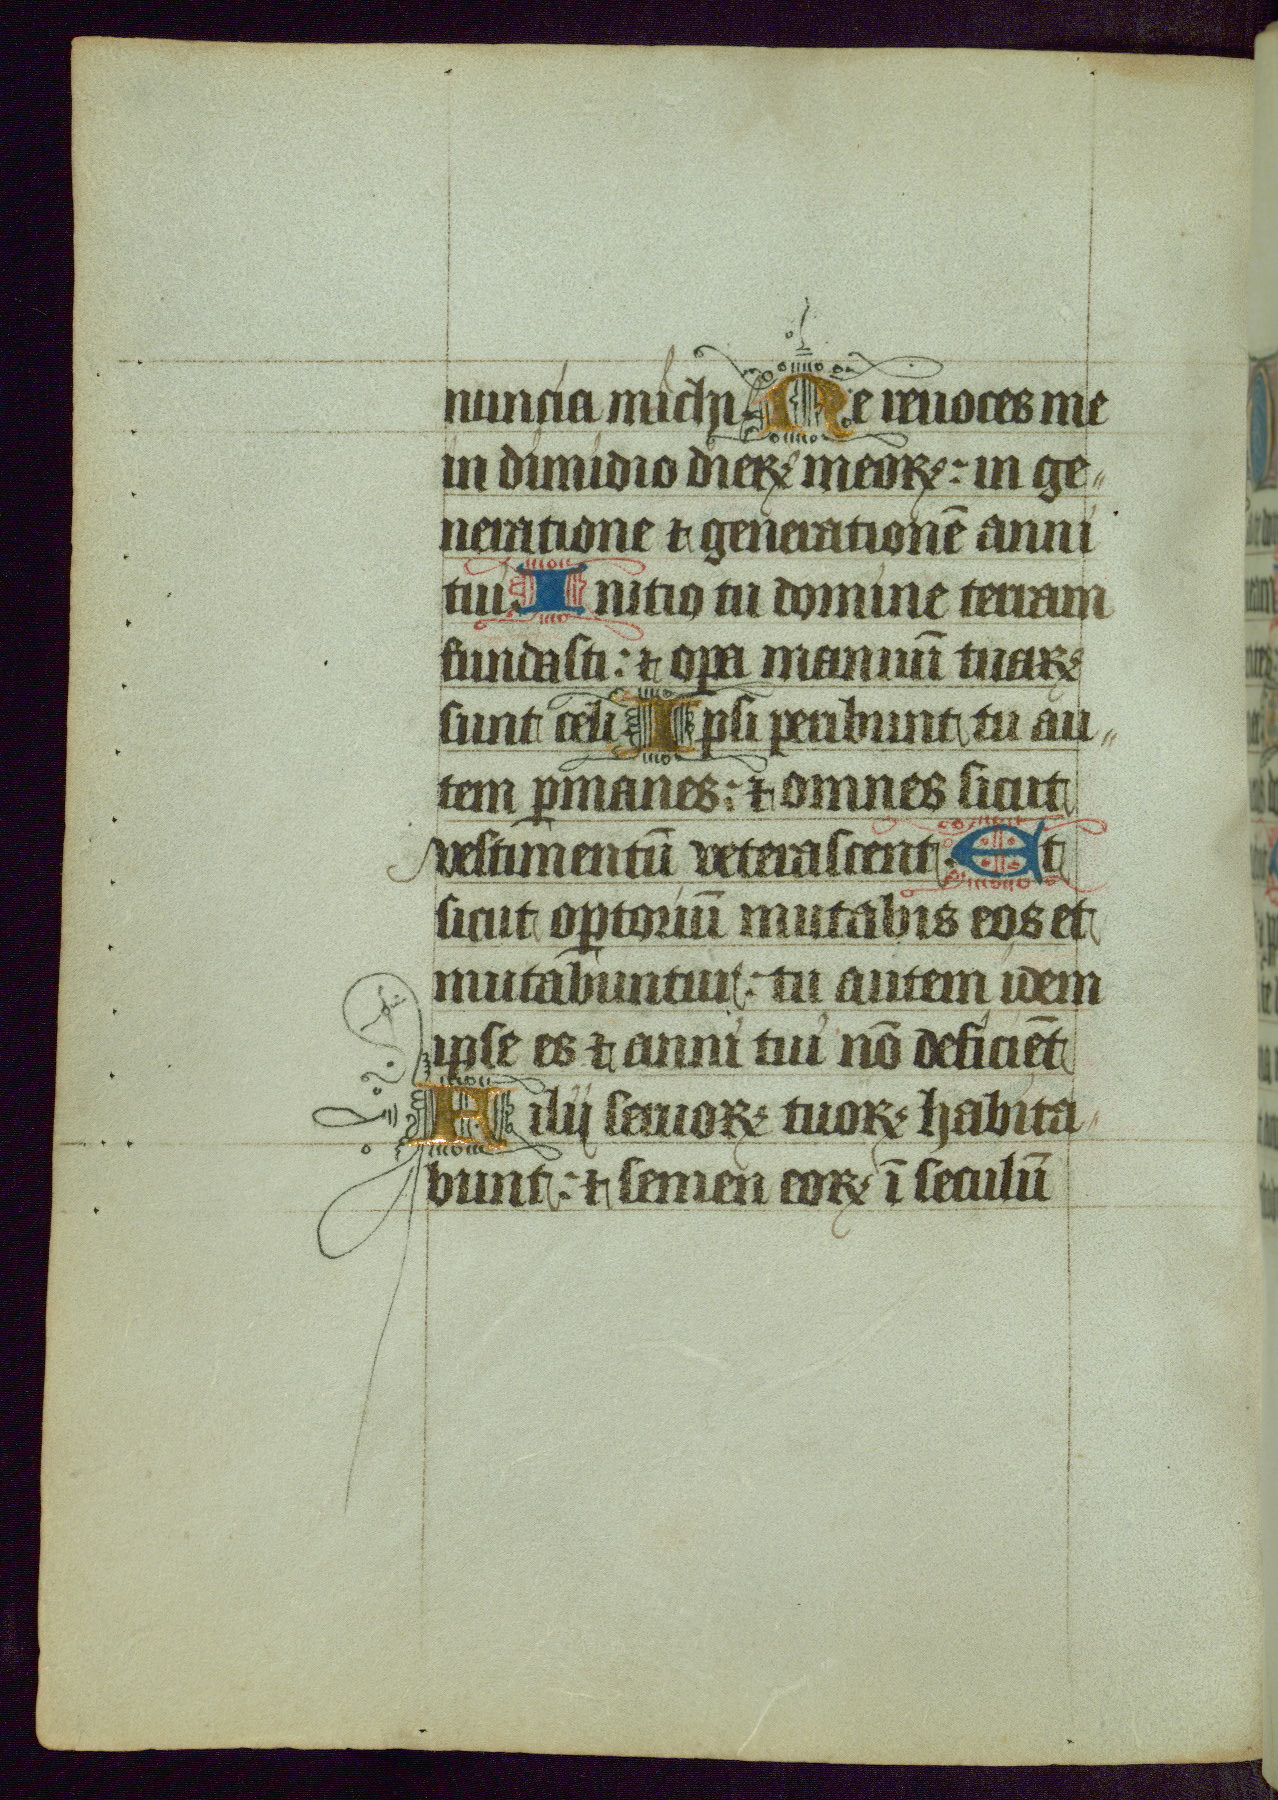 nuncia michi. Ne reuoces me
in dimidio dierꝝ meorꝝ: in ge-
neratione ⁊ generationē anni
tui. Initio tu domine terram
fundasti: ⁊ oꝑa manuū tuarꝝ
sunt celi Ipsi peribunt tu au-
tem ꝑmanes: ⁊ omnes sicut
vestimentū veterascent. Et
sicut oꝑtoriū mutabis eos et
mutabuntur: tu autem idem
ipse es ⁊ anni tui nō deficiēt
Filij seruorꝝ tuorꝝ habita-
bunt: ⁊ semen eorꝝ ī seculū